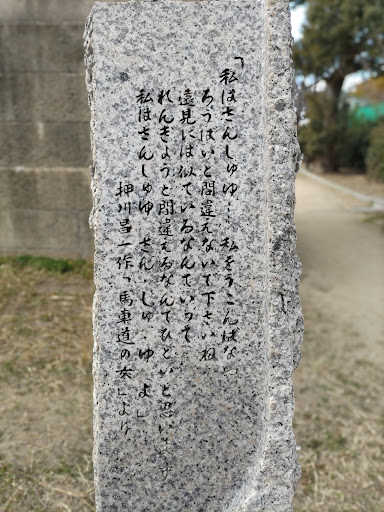 「私はさんしゅゆ…私をうこんばな
ろうばいと間違えないで下さいね
遠見には似ているなんていって…
れんぎょうと間違えるなんてひどいと思います
私はさんしゅゆ さん．しゅ．ゆ よ」
押川昌一作「馬車道の女」より